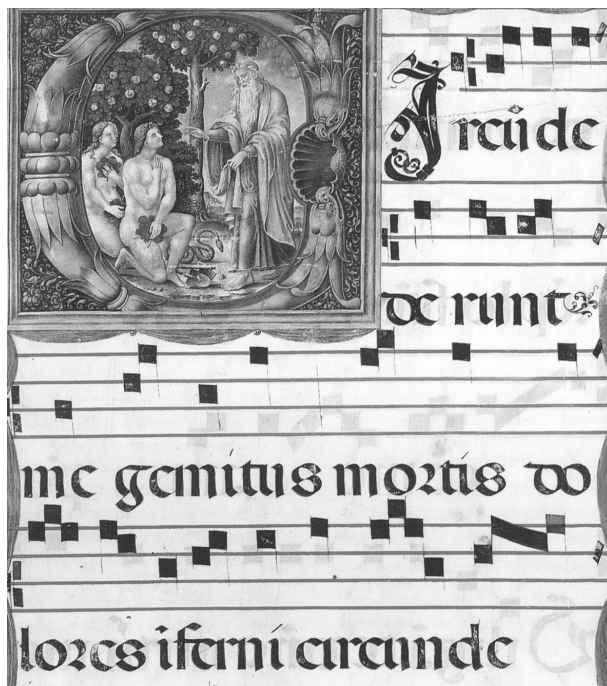 CIrcūde
derunt
me gemitus mortis do
lores iferni circunde